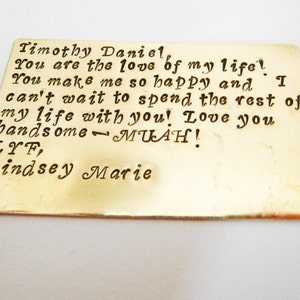 Timothy Daniel,
You are the love of my life!
You make me so happy and I
can't wait to spend the rest of
my life with you! Love you
handsome - MUAH!
LYF,
Lindsey Marie